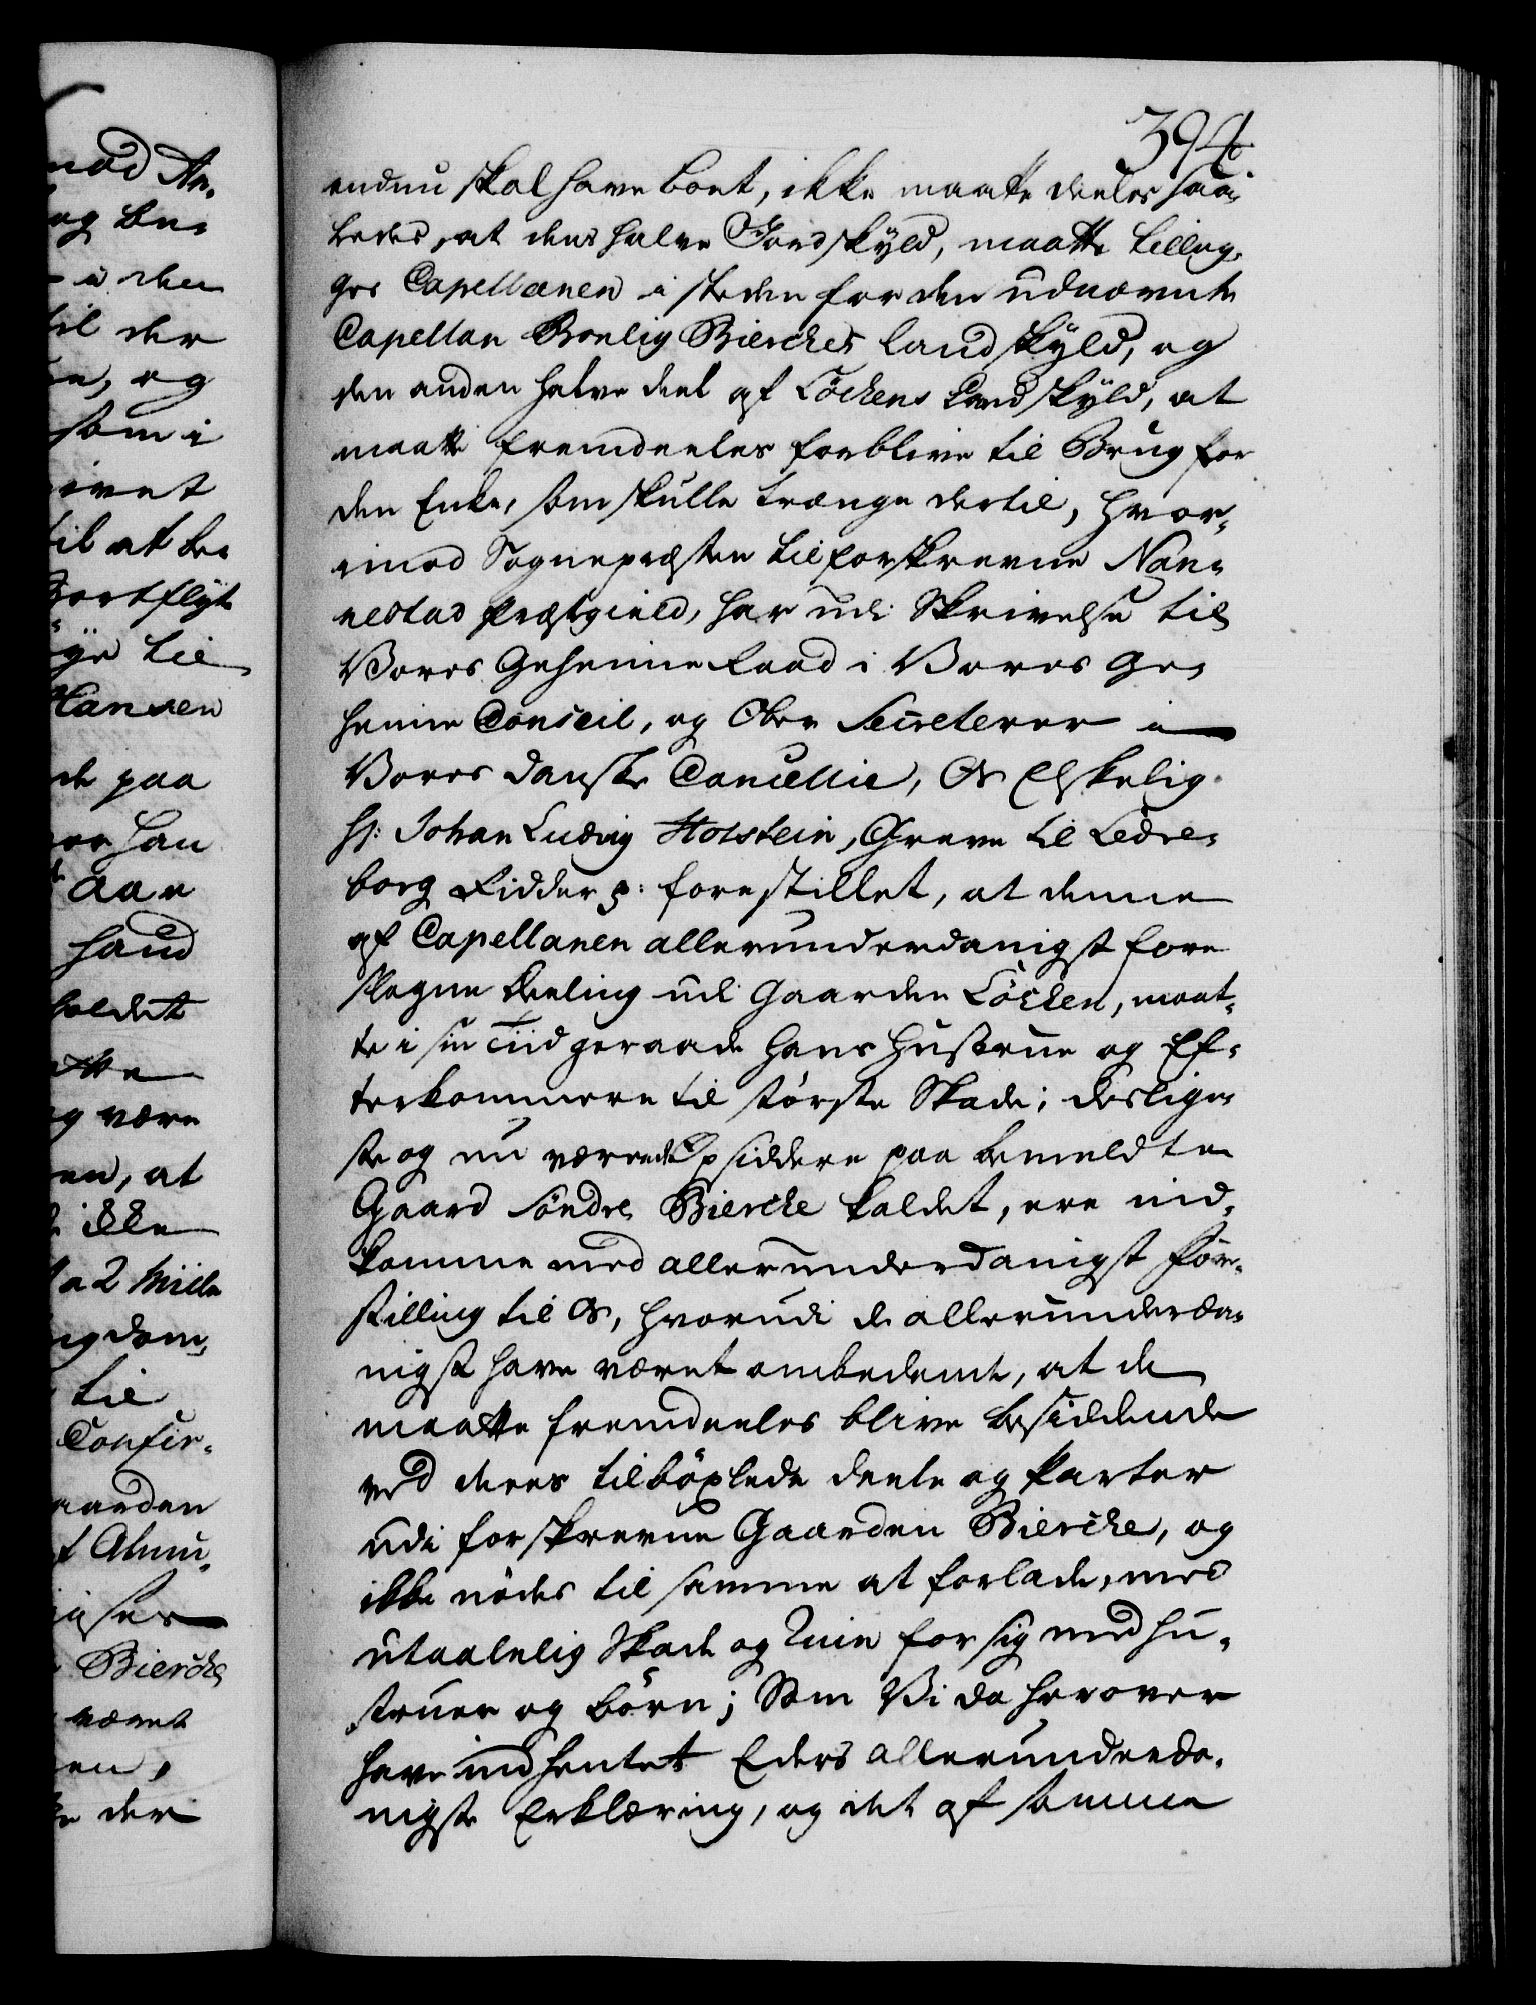 394
endnu skal have boet, ikke maatte deeles saa-
ledes, at dend halve Jordskyld, maatte tillæg-
ges Capellanen i steden for den udnævnte
Capellan Bonlig Bierches landskyld, og
den anden halve deel af Löckens Landskyld, at
maatte fremdeeles forblive til Brug for
den Enke, som skulle trænge dertil, hvor-
imod Sognepræsten til forskrevne Nan-
nestad Præstegield, har udi Skrivelse til
Vores Geheime Raad i Vores Ge-
heime Conseil, og Ober Secreterer i
Vores Danske Cancellie, Os Elskelig
Hr: Johan Ludvig Holstein, Greve til Ledre-
borg Ridder p: forestillet, at denne
af Capellanen allerunderdanigst fore
slagne Deeling udi Gaarden Löcken, maat-
te i sin Tiid geraade hans Hustrue og Ef-
terkommere til største Skade; deslige-
ste og nu værende Opsiddere paa bemeldte
Gaard Söndre Bierche kaldet, ere ind-
komme med allerunderdanigst Fore-
stilling til Os, hvorudi de allerunderda-
nigst have været ombedende, at de
maatte fremdeeles blive besiddende
ved deres tilböxlede Deele og Parter
udi forskrevne Gaarden Bierche, og
ikke nödes til samme at forlade, med
utaalelig Skade og Ruin for sig med Hu-
struer og Börn; Som Vi da herover
have indhentet Eders allerunderda-
nigste Erklæring, og det af samme